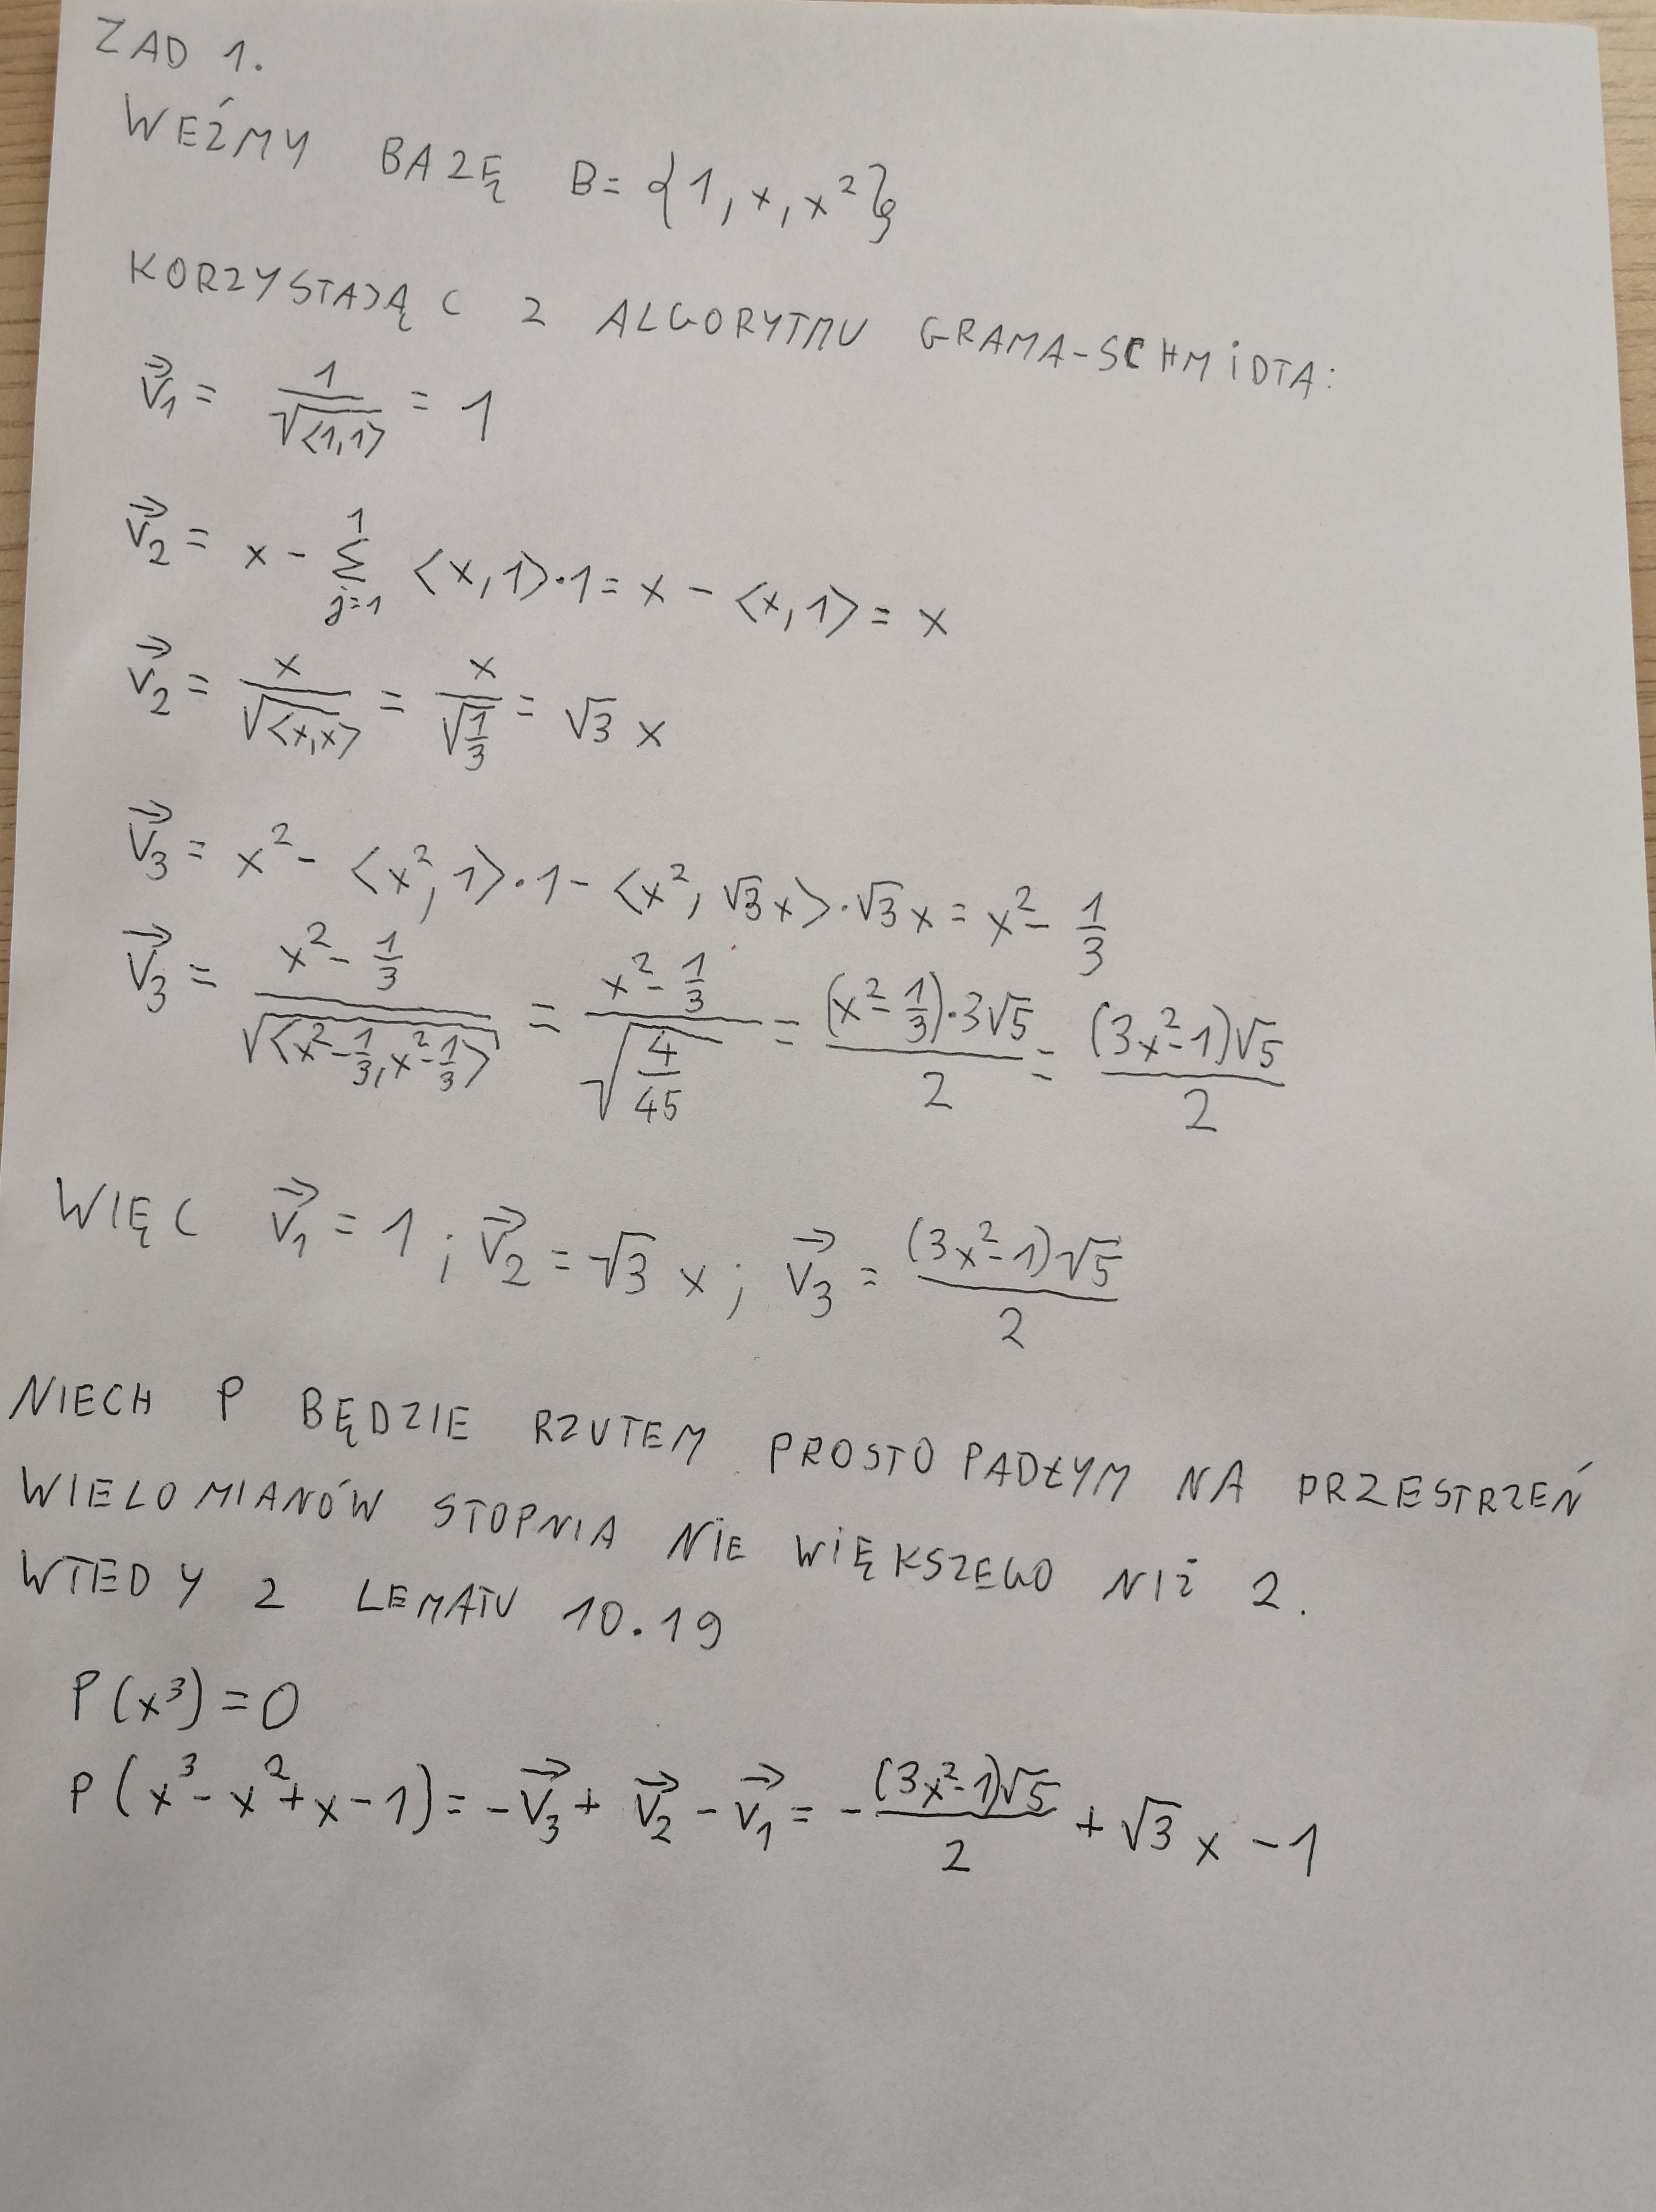 ZAD 1.
WEŹMY BAZĘ B = {1, x, x²}
KORZYSTAJĄC Z ALGORYTMU GRAMA-SCHMIDTA:
v⃗₁ = 1/√⟨1,1⟩ = 1
v⃗₂ = x - ∑_{j=1}^{1} ⟨x, 1⟩·1 = x - ⟨x, 1⟩ = x
v⃗₂ = x/√⟨x,x⟩ = x/√(1/3) = √3 x
v⃗₃ = x² - ⟨x², 1⟩·1 - ⟨x², √3x⟩·√3x = x² - 1/3
v⃗₃ = (x² - 1/3)/√⟨x² - 1/3, x² - 1/3⟩ = (x² - 1/3)/√(4/45) = ((x² - 1/3)·3√5)/2 = ((3x² - 1)√5)/2
WIĘC v⃗₁ = 1 ; v⃗₂ = √3 x ; v⃗₃ = ((3x² - 1)√5)/2
NIECH P BĘDZIE RZUTEM PROSTOPADŁYM NA PRZESTRZEŃ
WIELOMIANÓW STOPNIA NIE WIĘKSZEGO NIŻ 2.
WTEDY Z LEMATU 10.19
P(x³) = 0
P(x³ - x² + x - 1) = -v⃗₃ + v⃗₂ - v⃗₁ = -((3x² - 1)√5)/2 + √3 x - 1